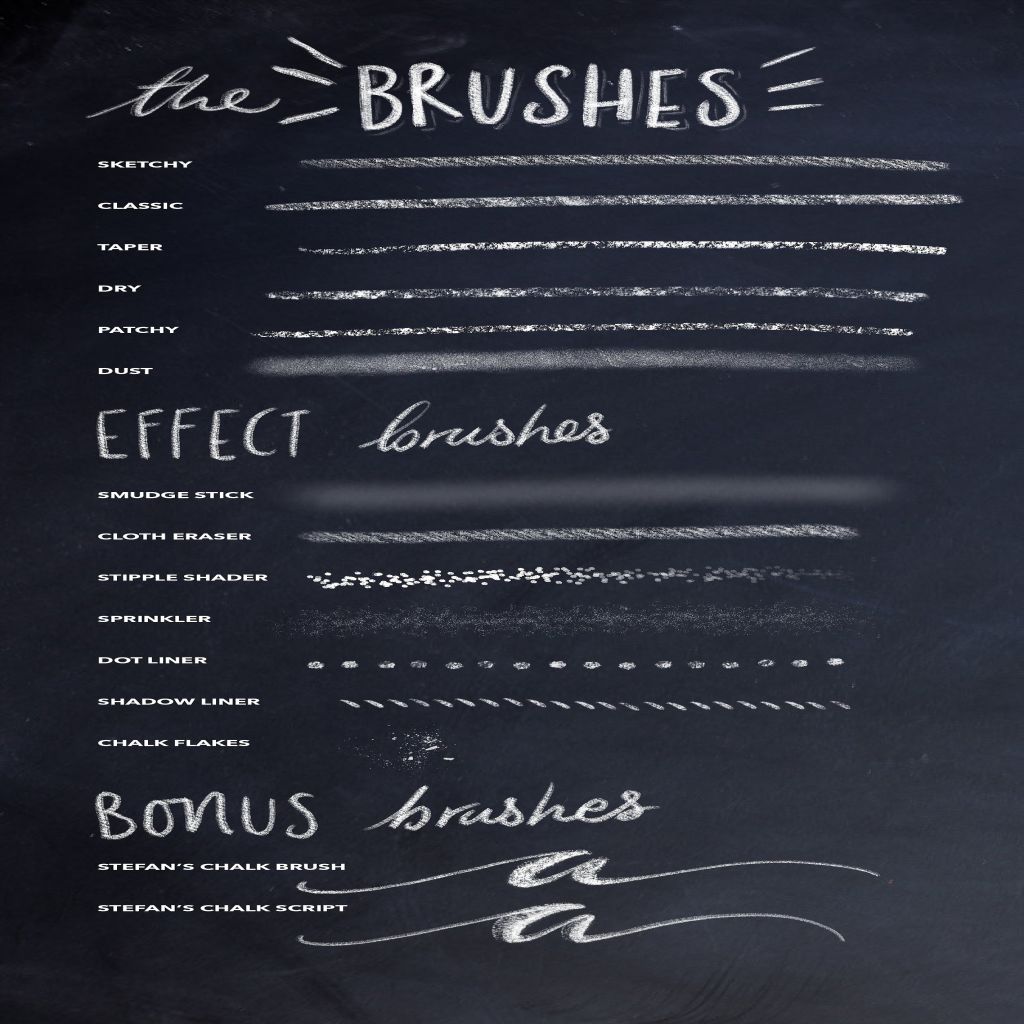 the BRUSHES
SKETCHY
CLASSIC
TAPER
DRY
PATCHY
DUST
EFFECT brushes
SMUDGE STICK
CLOTH ERASER
STIPPLE SHADER
SPRINKLER
DOT LINER
SHADOW LINER
CHALK FLAKES
BONUS brushes
STEFAN'S CHALK BRUSH
a
STEFAN'S CHALK SCRIPT
a